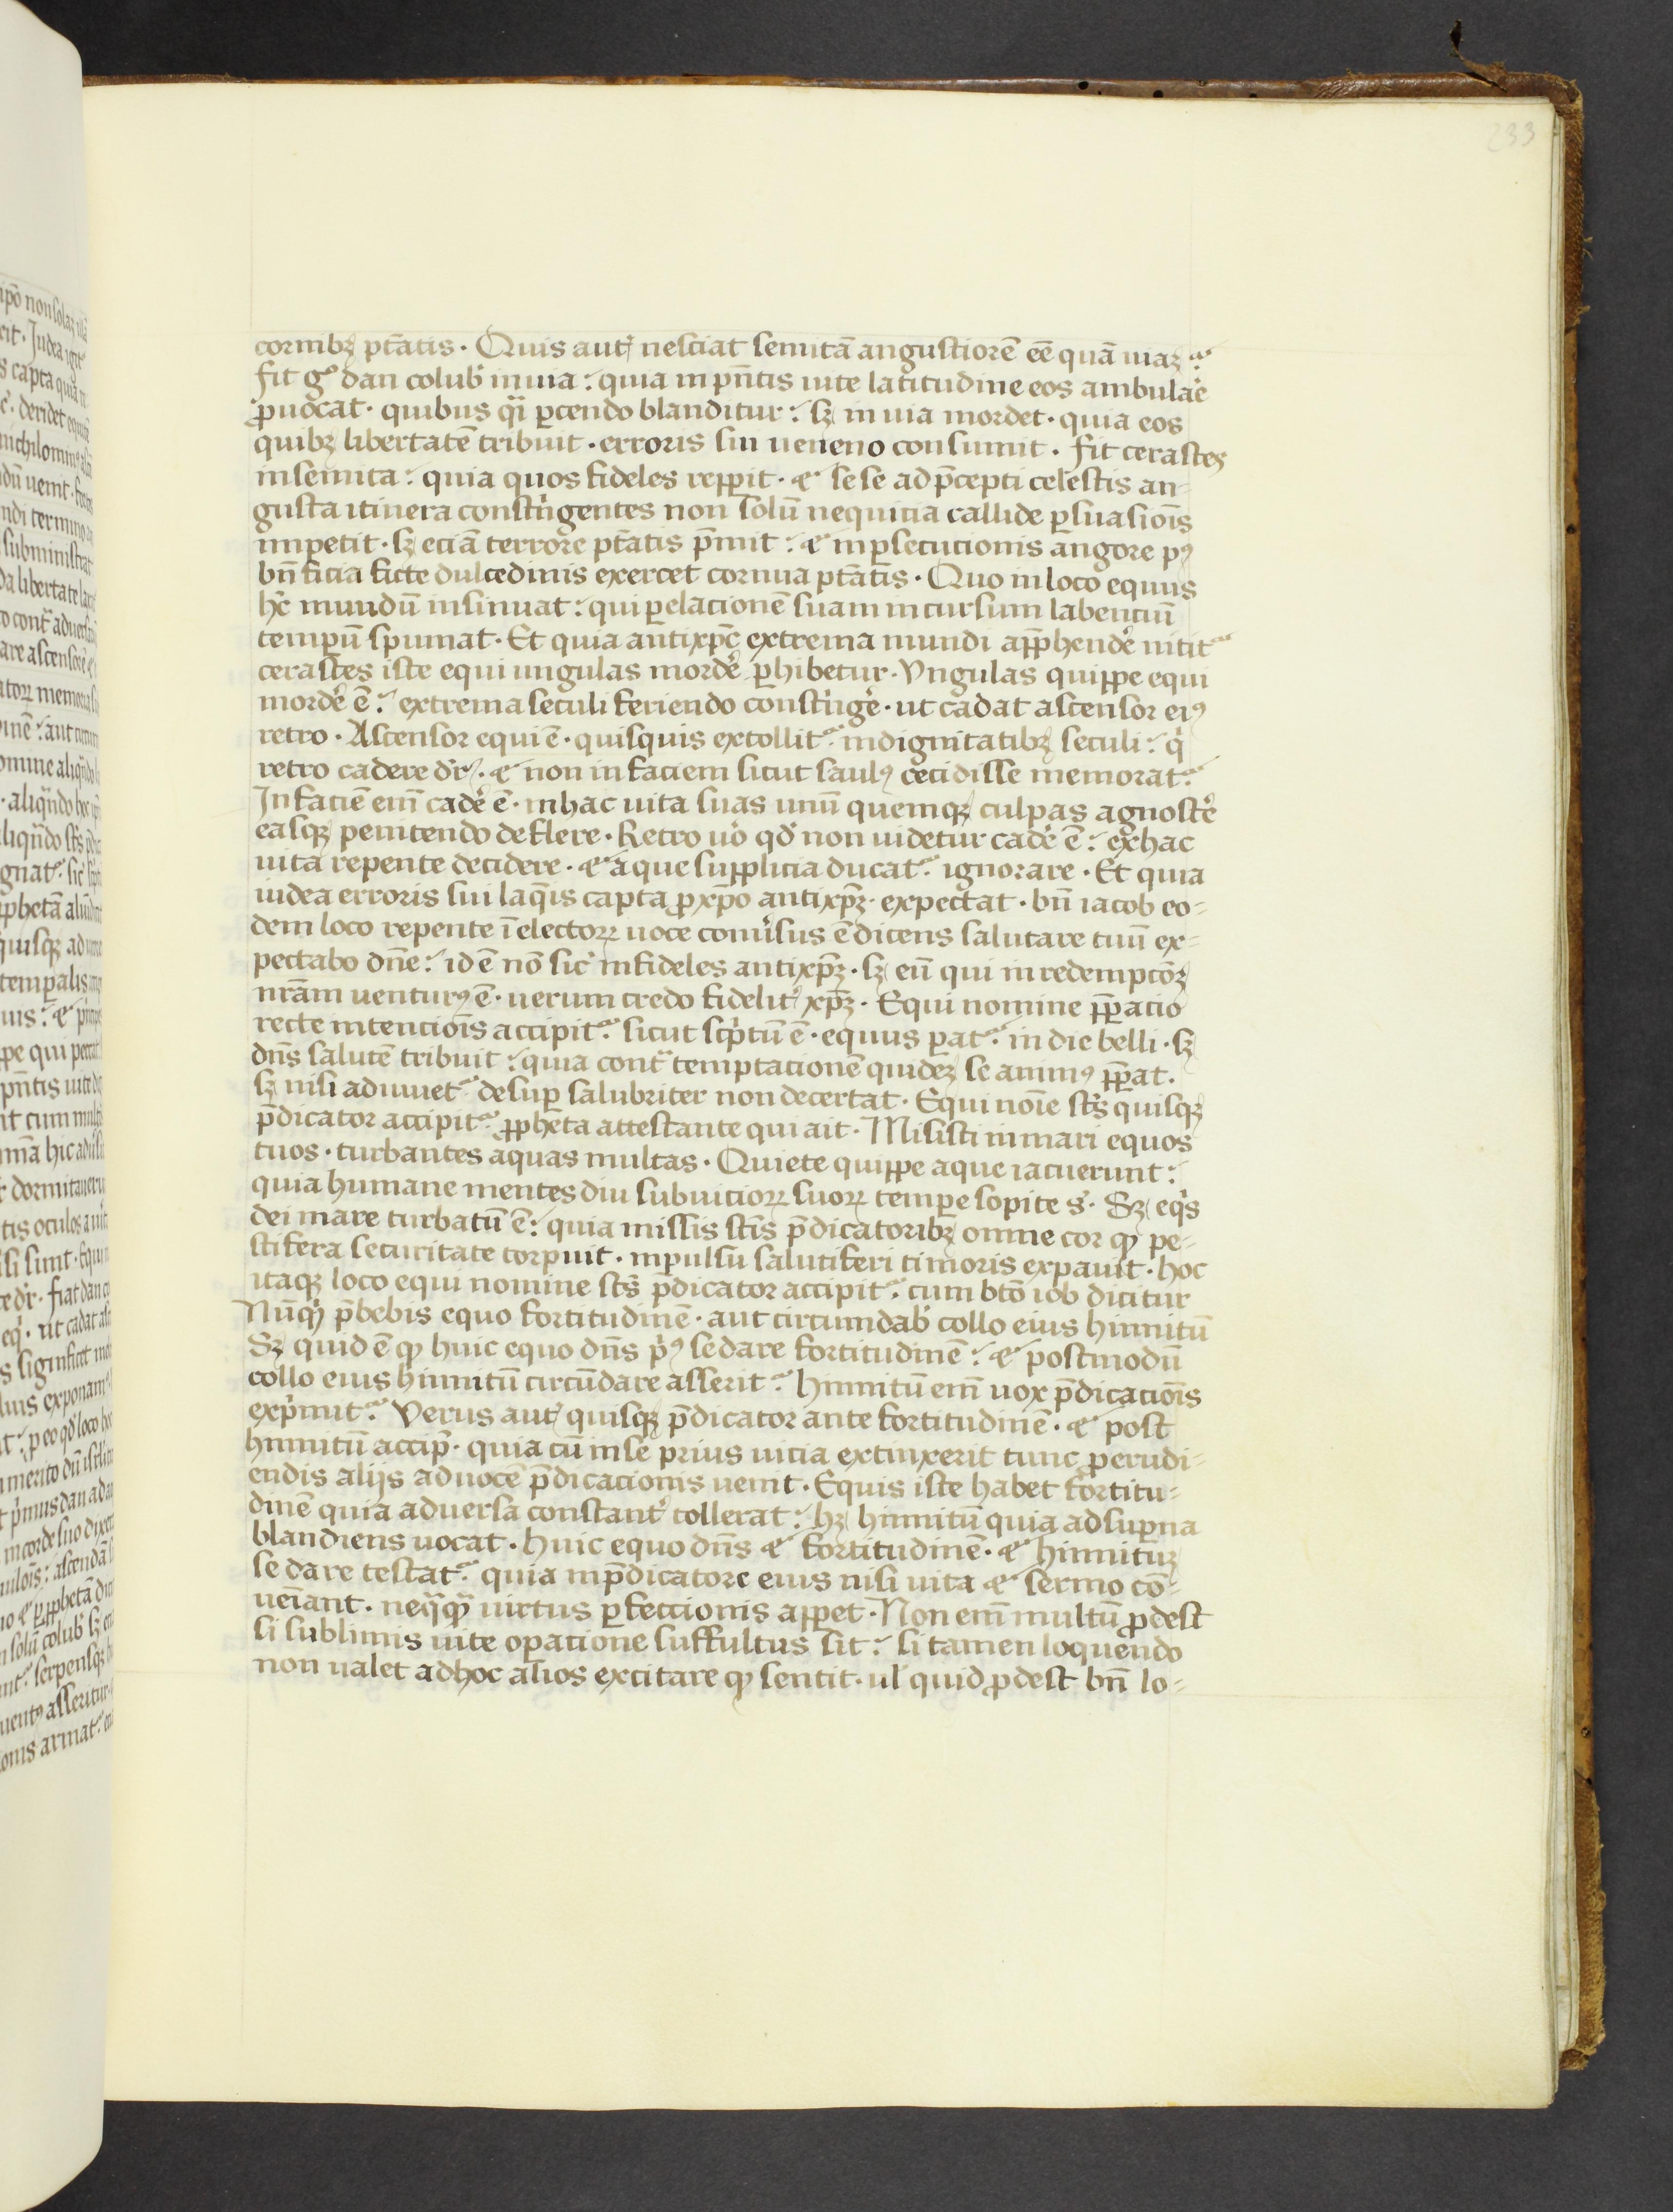 233
cornibꝫ ptāatis · Quis aut nesciat semitā angustiorē eē quā uiaꝫ :
fit gͦ dan colub̓ in uia : quia in pn̄tis uite latitudine eos ambular̓e
ꝓuocat · quibus qͣi ꝑcendo blanditur : sꝫ in uia mordet · quia eos
quibꝫ libertatē tribuit · erroris sui ueneno consumit · fit cerastes
in semita : quia quos fideles repꝑit · ⁊ se se ad p̄cepti celestis an-
gusta itinera constͥngentes non solū nequicia callide ꝑsuasiōis
impetit · sꝫ eciā terrore ptātis p̄mit : ⁊ in ꝑsecucionis angore pꝰ
bn̄ficia ficte dulcedinis exercet cornua ptātis · Quo in loco equus
hͨ mundū insinuat : qui ꝑ elacionē suam in cursum labenciū
tempꝝ spumat · Et quia antixp̄c extrema mundi apphender̓ nitit᷑
cerastes iste equi ungulas morder̓ ꝑhibetur · Vngulas quippe equi
morder̓ ē : extrema seculi feriendo constͥnger̓ · ut cadat ascensor eiꝰ
retro · Ascensor equi ē · quisquis extollit᷑ in dignitatibꝫ seculi : qͥ
retro cadere dr̄ · ⁊ non in faciem sicut saulꝰ cecidisse memorat᷑
In faciē eni͞ cader̓ ē · in hac uita suas unū quemqꝫ culpas agnoscer̓
easqꝫ penitendo deflere · Retro uo̓ qd̓ non uidetur cader̓ ē : ex hac
uita repente decidere · ⁊ a que supplicia ducat᷑ ignorare · Et quia
iudea erroris sui laqͣis capta ꝓ xp̄o antixp̄ꝫ · expectat · bn̄ iacob eo-
dem loco repente ī electorꝝ uoce conu̓sus ē dicens salutare tuū ex-
pectabo dn̄e : id ē nō sic̓ infideles antixp̄ꝫ · sꝫ eū qui in redempcōꝫ
nrā̄m uenturꝰ ē · uerum credo fidelit̓ xp̄ꝫ · Equi nomine pꝑacio
recte intenciōis accipit᷑ sicut scͥptū ē · equus ꝑat᷑ in die belli · sꝫ
dn̄s salutē tribuit : quia contͣ temptacionē quideꝫ se animꝰ pꝑat ·
sꝫ nisi adiuuet᷑ desuꝑ salubriter non decertat · Equi noīe stͨs quisqꝫ
p̄dicator accipit᷑ ꝓpheta attestante qui ait · Misisti in mari equos
tuos · turbantes aquas multas · Quiete quippe aque iacuerunt :
quia humane mentes diu sub uiciorꝝ suorꝝ temꝑe sopite s̄ · Sꝫ eqͥs
dei mare turbatū ē : quia missis stīs p̄dicatoribꝫ omne cor qͫ pe-
stifera securitate torpuit · inpulsū salutiferi timoris expauit · hoc
itaqꝫ loco equi nomine stͨs p̄dicator accipit᷑ cum btō iob dicitur
Nūqͥ p̄bebis equo fortitudinē · aut circumdab̓ collo eius hinnitū
Sꝫ quid ē qͫ huic equo dn̄s pͥꝰ se dare fortitudinē : ⁊ postmodū
collo eius hinnitū circūdare asserit᷑ hinnitū em̄ uox p̄dicaciōis
expͥmit᷑ Verus aut quisqꝫ p̄dicator ante fortitudinē · ⁊ post
hinnitū accip̄ · quia cū in se prius uicia extinxerit tunc ꝓ erudi-
endis alijs ad uocē p̄dicacionis uenit · Equis iste habet fortitu-
dinē quia aduersa constant̓ tollerat : hꝫ hinnitū quia ad suꝑna
blandiens uocat · Huic equo dn̄s ⁊ fortitudinē · ⁊ hinnituꝫ
se dare testat᷑ quia in p̄dicatore eius nisi uita ⁊ sermo cō-
ueīant · neqͣqͣ uirtus ꝑfeccionis apꝑet · Non em̄ multū ꝓdest
si sublimis uite oꝑatione suffultus sit : si tamen loquendo
non ualet ad hoc alios excitare qͫ sentit · ul̓ quid ꝓdest bn̄ lo-